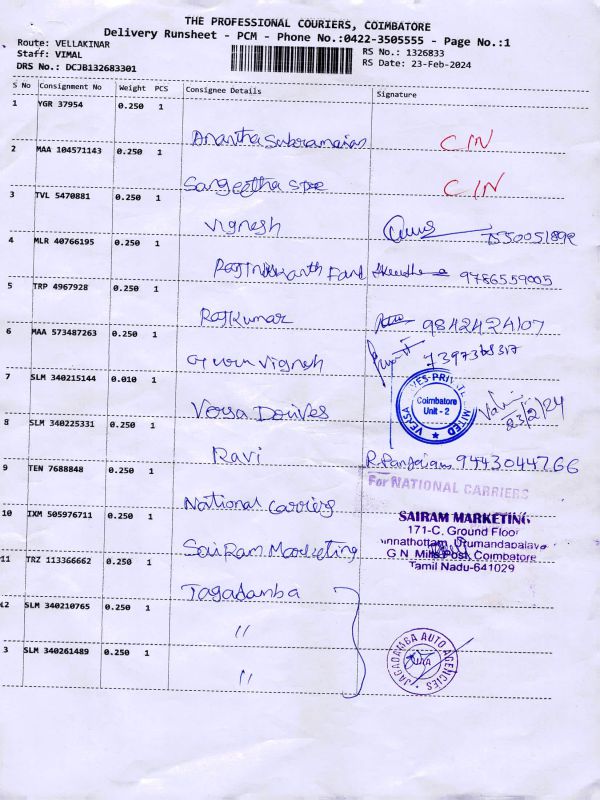 THE PROFESSIONAL COURIERS, COIMBATORE
Delivery Runsheet - PCM - Phone No.:0422-3505555 - Page No.:1
Route: VELLAKINAR
Staff: VIMAL
DRS No.: DCJB132683301
RS No.: 1326833
RS Date: 23-Feb-2024
S No Consignment No Weight PCS Consignee Details Signature
1 YGR 37954 0.250 1
Anantha Subramanian CIN
2 MAA 104571143 0.250 1
Sangeetha CIN
3 TVL 5470881 0.250 1
Vignesh
4 MLR 40766195 0.250 1
9786559005
5 TRP 4967928 0.250 1
Rajkumar 9842424107
6 MAA 573487263 0.250 1
Vignesh
7 SLM 340215144 0.010 1
Versa Drives
VERSA DRIVES PRIVATE LIMITED
Coimbatore
Unit - 2
23/2/24
8 SLM 340225331 0.250 1
Ravi 9443044766
9 TEN 7688848 0.250 1
For NATIONAL CARRIERS
National Carriers
10 IXM 505976711 0.250 1
SAIRAM MARKETING
171-C, Ground Floor
G.N. Mills Post, Coimbatore
Tamil Nadu-641029
SaiRam Marketing
11 TRZ 113366662 0.250 1
Jagadamba
12 SLM 340210765 0.250 1
"
3 SLM 340261489 0.250 1
"
JAGADAMBA AUTO AGENCIES